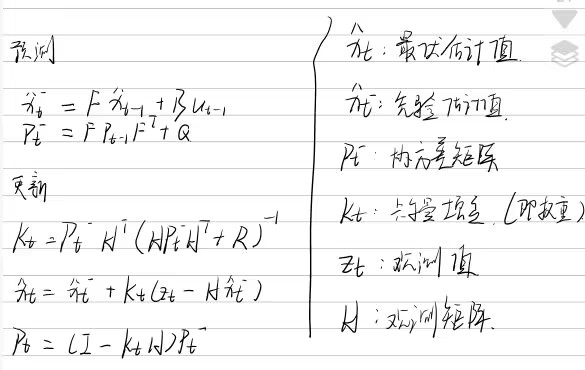 预测
x̂ₜ⁻ = F x̂ₜ₋₁ + B uₜ₋₁
Pₜ⁻ = F Pₜ₋₁ Fᵀ + Q
更新
Kₜ = Pₜ⁻ Hᵀ (H Pₜ⁻ Hᵀ + R)⁻¹
x̂ₜ = x̂ₜ⁻ + Kₜ(zₜ − H x̂ₜ⁻)
Pₜ = (I − Kₜ H) Pₜ⁻
x̂ₜ：最优估计值
x̂ₜ⁻：先验估计值
Pₜ⁻：协方差矩阵
Kₜ：卡尔曼增益（即权重）
zₜ：观测值
H：观测矩阵